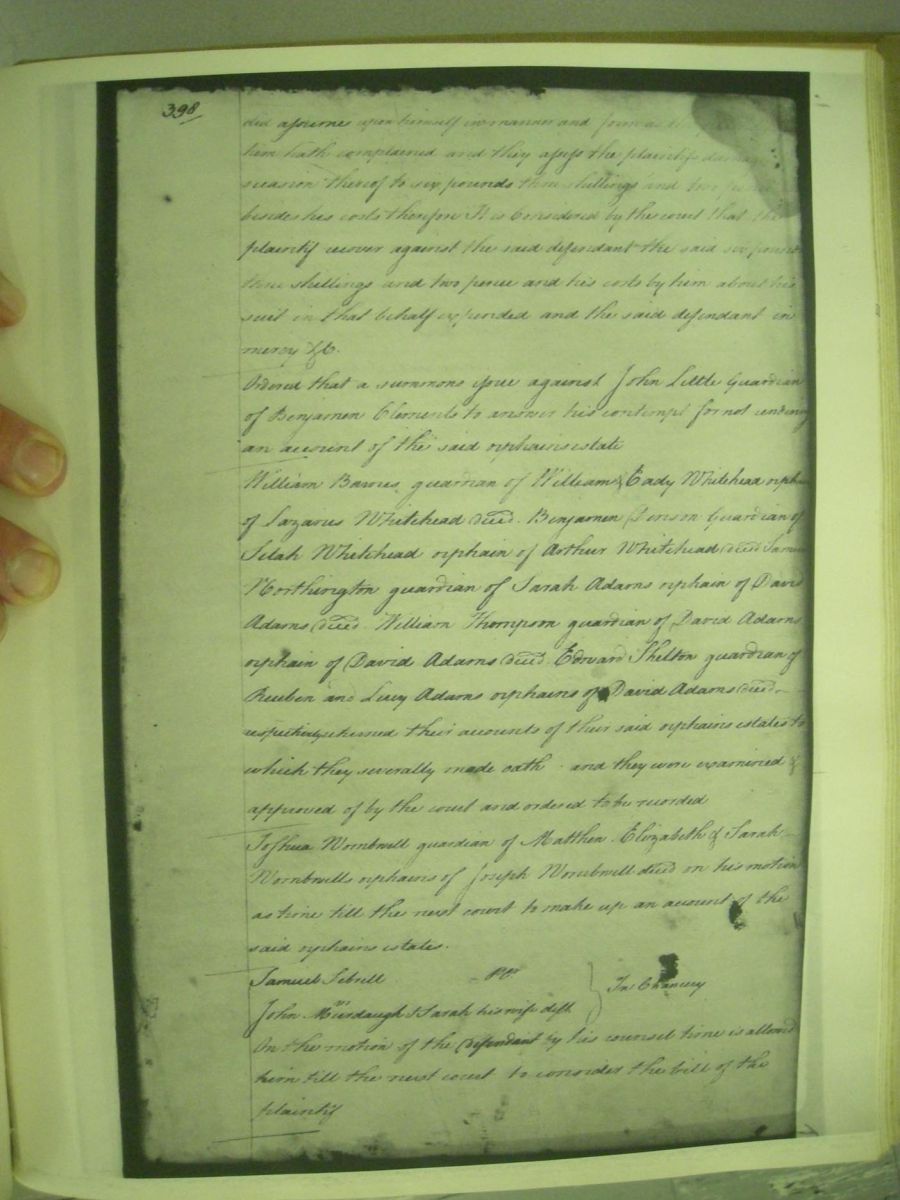 398
did assume upon himself in manner and form as the
him hath complained and they assess the plaintifs damages
reason thereof to six pounds three shillings and two pence
besides his costs therefore It is Considered by the court that the
plaintif recover against the said defendant the said six pounds
three shillings and two pence and his costs by him about his
suit in that behalf expended and the said defendant in
mercy &c.
Ordered that a summons issue against John Little Guardian
of Benjamen Clements to answer his contempt for not rendering
an account of the said orphains estate
William Barnes guardian of William & Eady Whitehead orphains
of Lazarus Whitehead decd. Benjamen Guardian of
Selah Whitehead orphain of Arthur Whitehead decd Samuel
Northington guardian of Sarah Adams orphain of David
Adams decd. William Thompson guardian of David Adams
orphain of David Adams decd. Edward Shelton guardian of
Reuben and Lucy Adams orphains of David Adams decd.
respectively returned their accounts of their said orphains estates to
which they severally made oath and they were examined &
approved of by the court and ordered to be recorded
Joshua Wombwell guardian of Matthew Elizabeth & Sarah
Wombwells orphains of Joseph Wombwell decd on his motion
as time till the next court to make up an account of the
said orphains estates.
Samuel Sebrell
John Murdaugh & Sarah his wife deft } In Chancery
On the motion of the defendant by his counsel time is allowed
him till the next court to consider the bill of the
plaintif